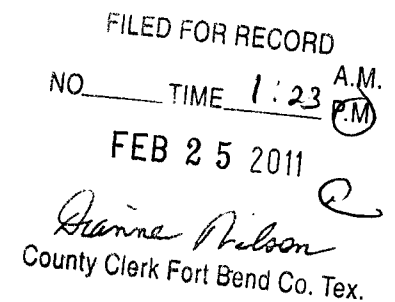 FILED FOR RECORD
NO______ TIME 1:23 A.M.
P.M.
FEB 25 2011
Dianne Wilson
County Clerk Fort Bend Co. Tex.